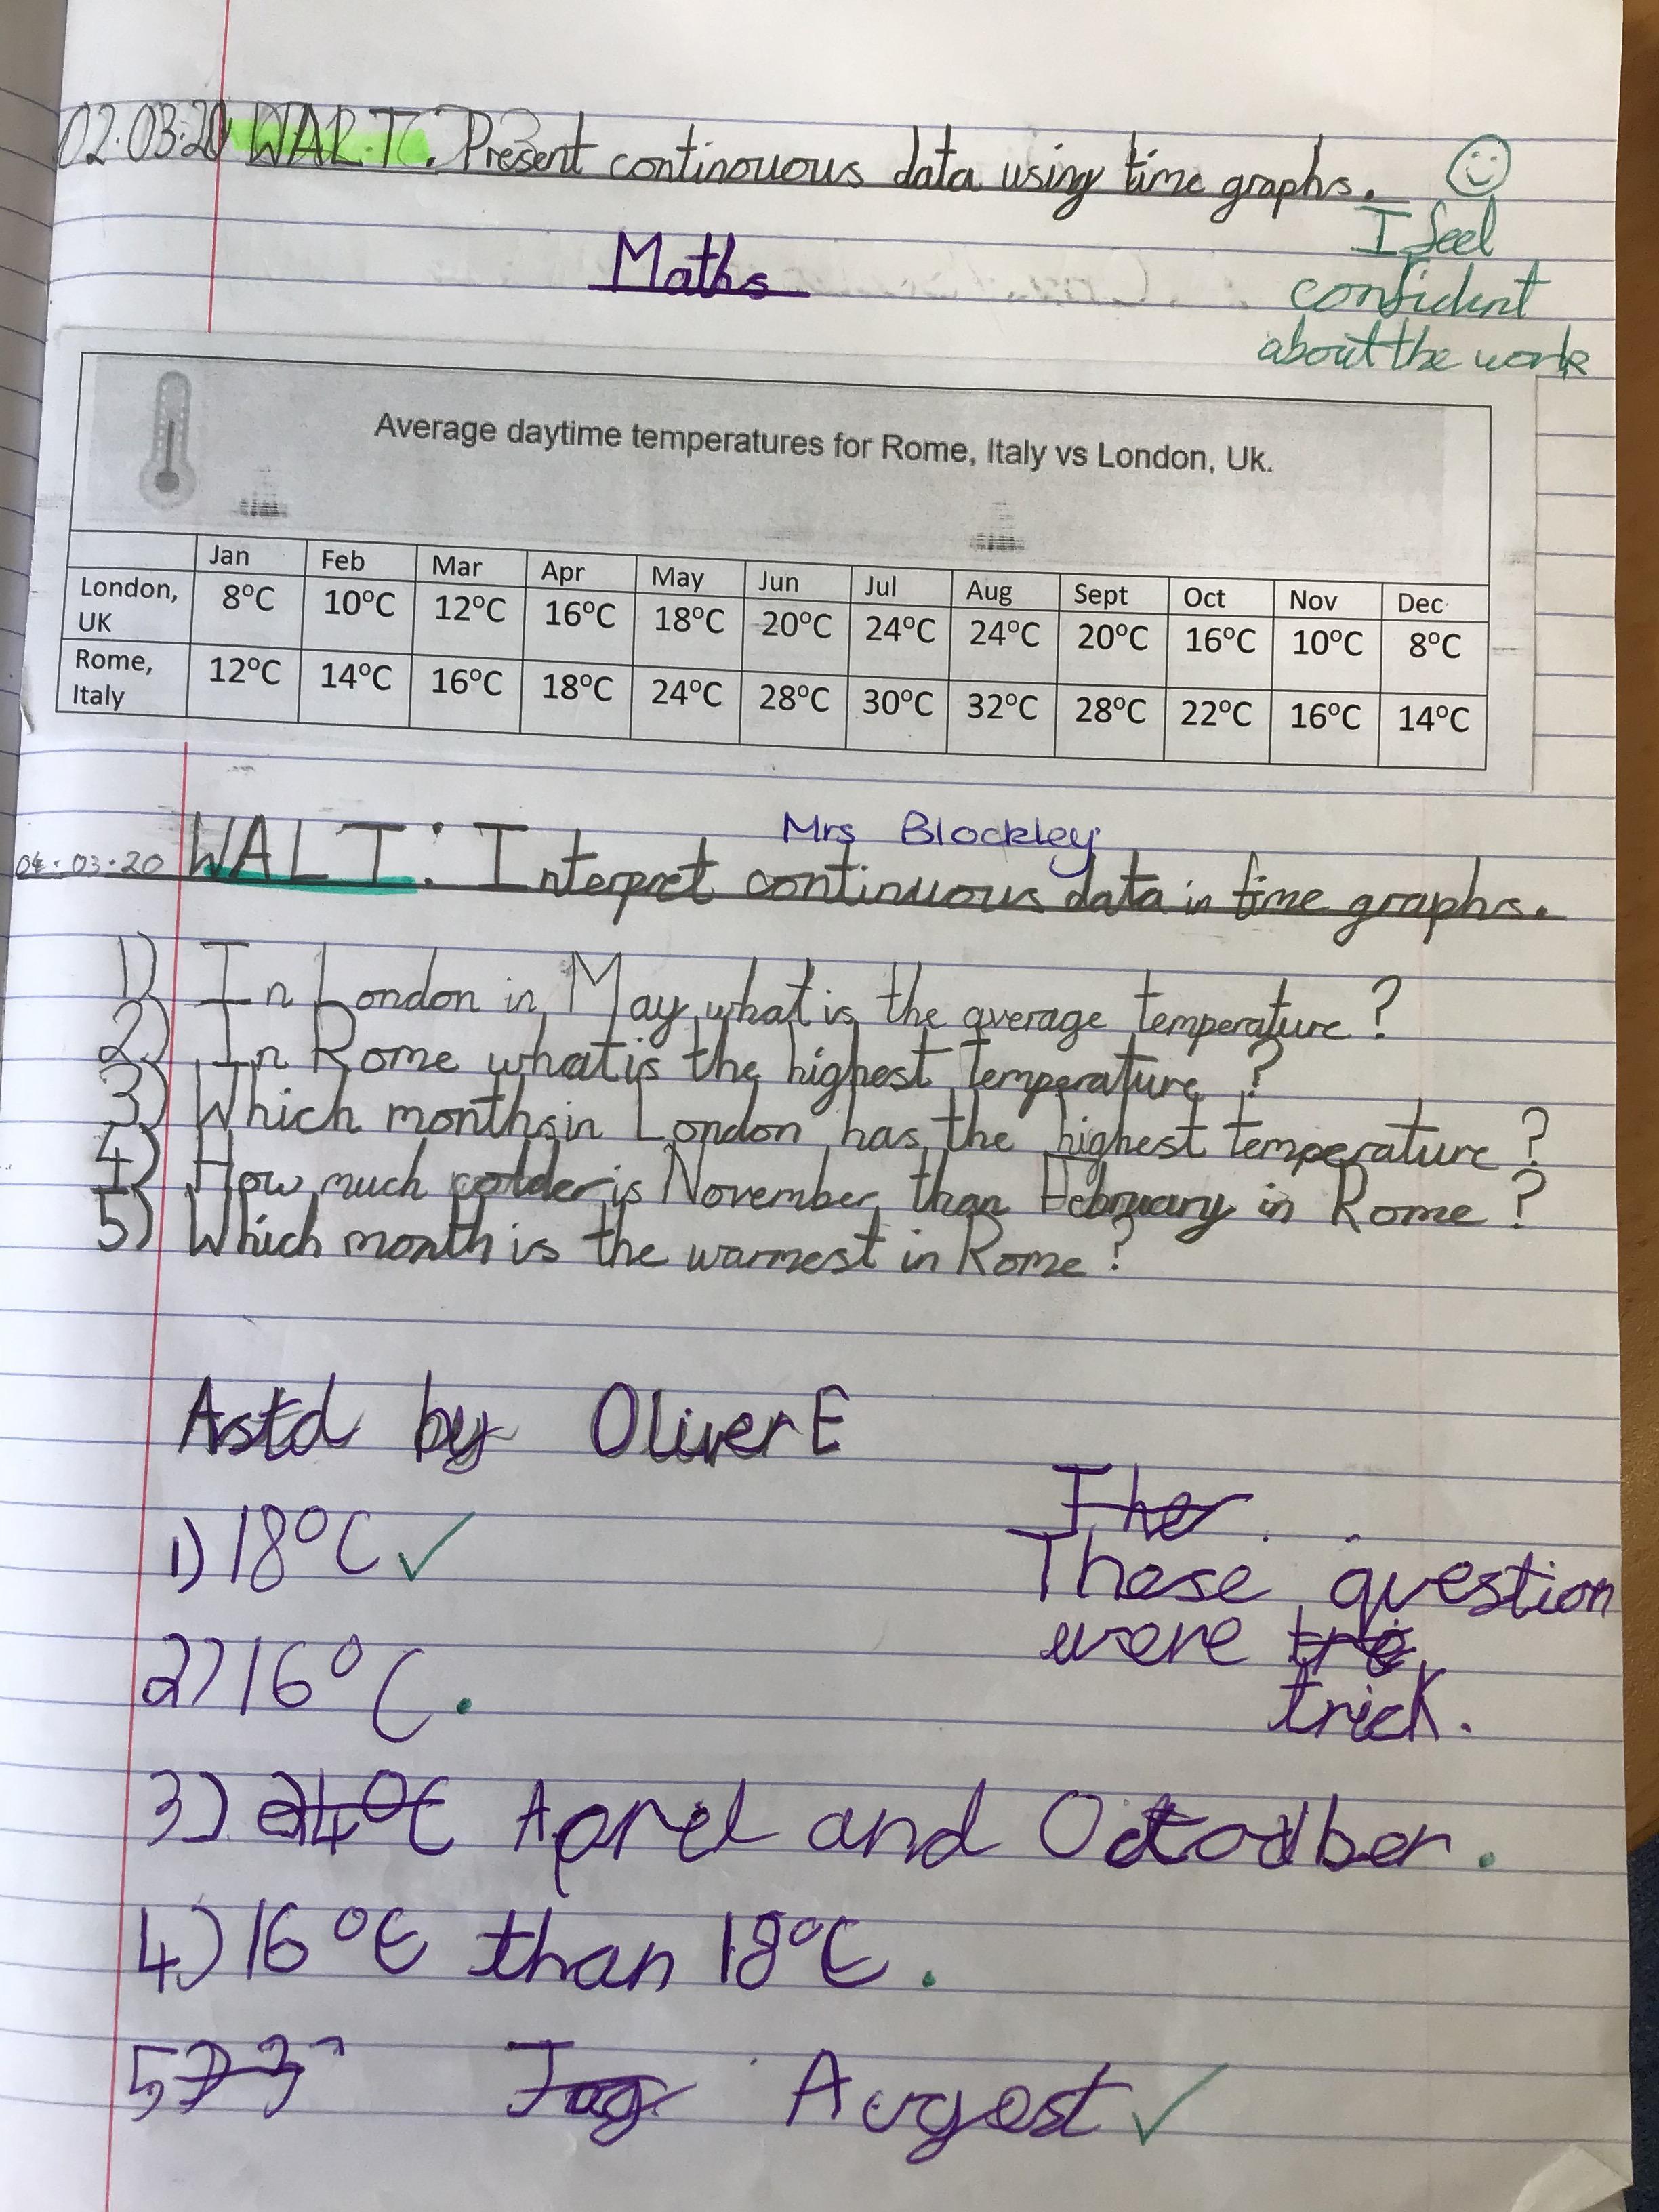 02.03.20 W.A.L.T. Present continouous data using time graphs.
I feel
confident
about the work
Maths
Average daytime temperatures for Rome, Italy vs London, Uk.
Jan Feb Mar Apr May Jun Jul Aug Sept Oct Nov Dec
London, UK 8°C 10°C 12°C 16°C 18°C 20°C 24°C 24°C 20°C 16°C 10°C 8°C
Rome, Italy 12°C 14°C 16°C 18°C 24°C 28°C 30°C 32°C 28°C 22°C 16°C 14°C
Mrs Blockley
04.03.20 WALT: Interpret continuous data in time graphs.
1) In London in May what is the average temperature?
2) In Rome what is the highest temperature?
3) Which months in London has the highest temperature?
4) How much colder is November than February in Rome?
5) Which month is the warmest in Rome?
Astd by Oliver E
1) 18°C ✓
2) 16°C.
Those question
were
trick.
3) 24°C Aprel and Octodber.
4) 16°C than 18°C.
5) Augest ✓